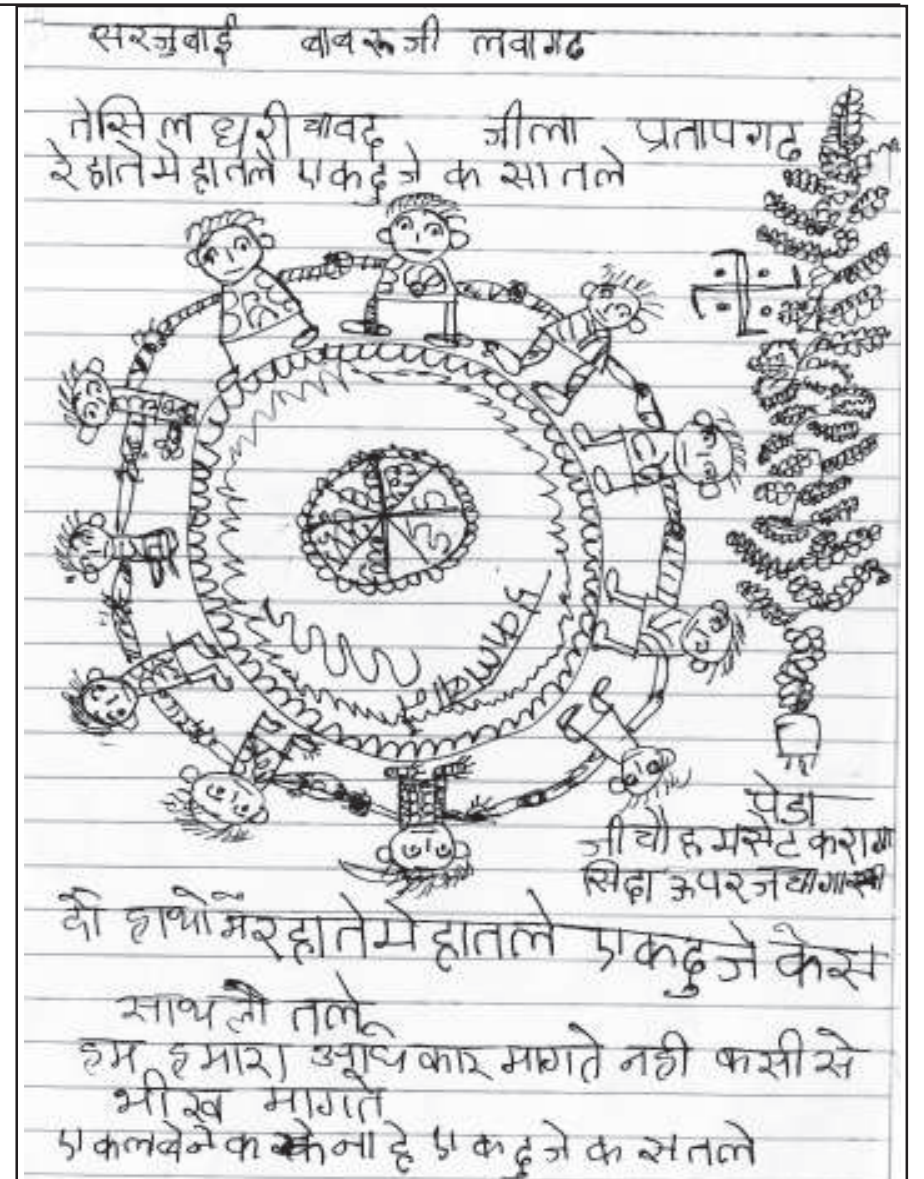 सरजुबाई बाबरूजी लवागढ
तेसिल धरीयावद जीला प्रतापगढ
रे हातेमे हातले एकदुजे क सातले
पेडा
जीचो हमसेट करागा
सिदा ऊपर ज
दो हाथो मेरहातेमे हातले एकदुजे केस
साथलौ तले
हम हमारा अधिकार मागते नही कसीसे
भीख मागते
एकलबेनेक केना हे एकदुजे क सतले